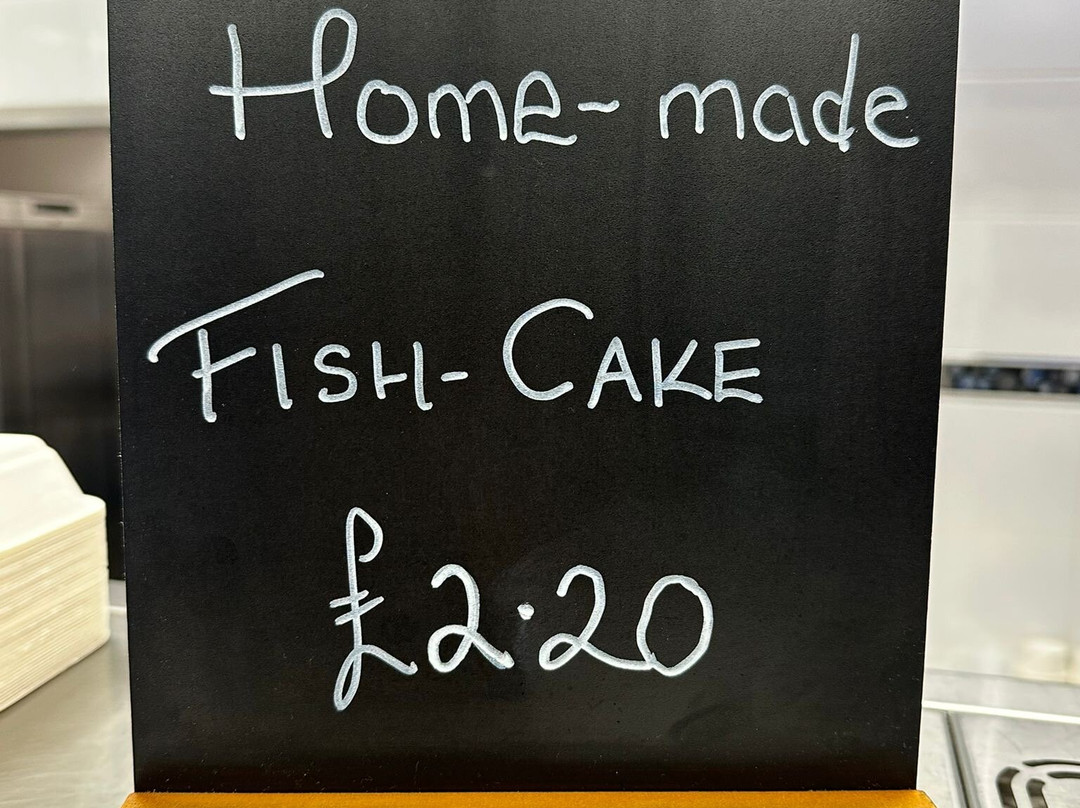 Home- made
FISH- CAKE
£2.20